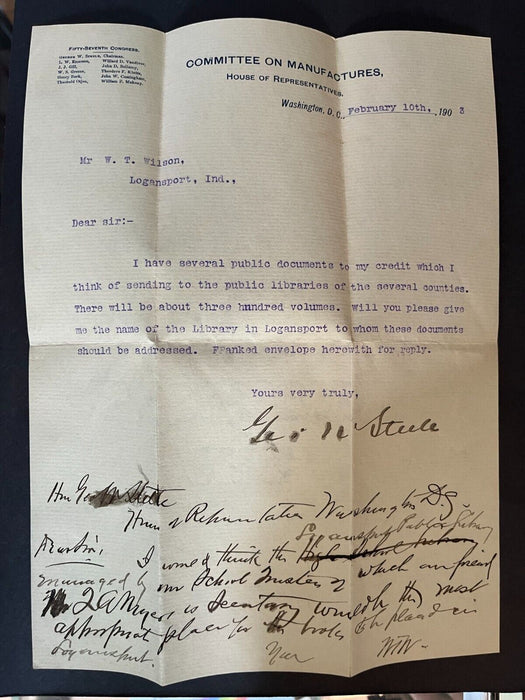 FIFTY-SEVENTH CONGRESS.
GEORGE W. STEELE, Chairman.
J. J. Gill,
W. S. Greene,
Henry Bork,
Theobold Otjen,
Willard D. Vandiver,
John D. Bellamy,
Theodore F. Kluttz,
John W. Cunningham,
William F. Mahoney.
COMMITTEE ON MANUFACTURES,
HOUSE OF REPRESENTATIVES.
Washington, D. C., February 10th, , 190 3
Mr W. T. Wilson,
Logansport, Ind.,
Dear sir:-
I have several public documents to my credit which I
think of sending to the public libraries of the several counties.
There will be about three hundred volumes. Will you please give
me the name of the Library in Logansport to whom these documents
should be addressed. Franked envelope herewith for reply.
Yours very truly,
Geo W Steele
Hon Geo W Steele
House of Representatives Washington D.C.
Logansport Public Library
Dear Sir, I would think the High School
managed by our School Trustees of which our friend
Mr J A Myers is Secretary would be the most
appropriate place for the books to be placed in
Logansport. WTW-